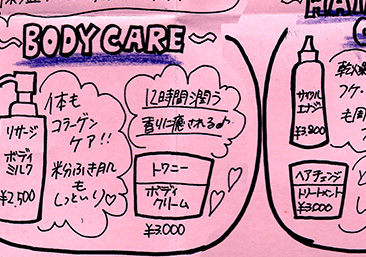 ~BODY CARE~
リサージ
ボディ
ミルク
¥2,500
体も
コラーゲン
ケア!!
粉ふき肌
も
しっとり♡
12時間潤う
香りに癒される♪
トワニー
ボディ
クリーム
¥3,000
HAI
乾燥
フケ・
も
ヘアチェンジ
トリートメント
¥3,000